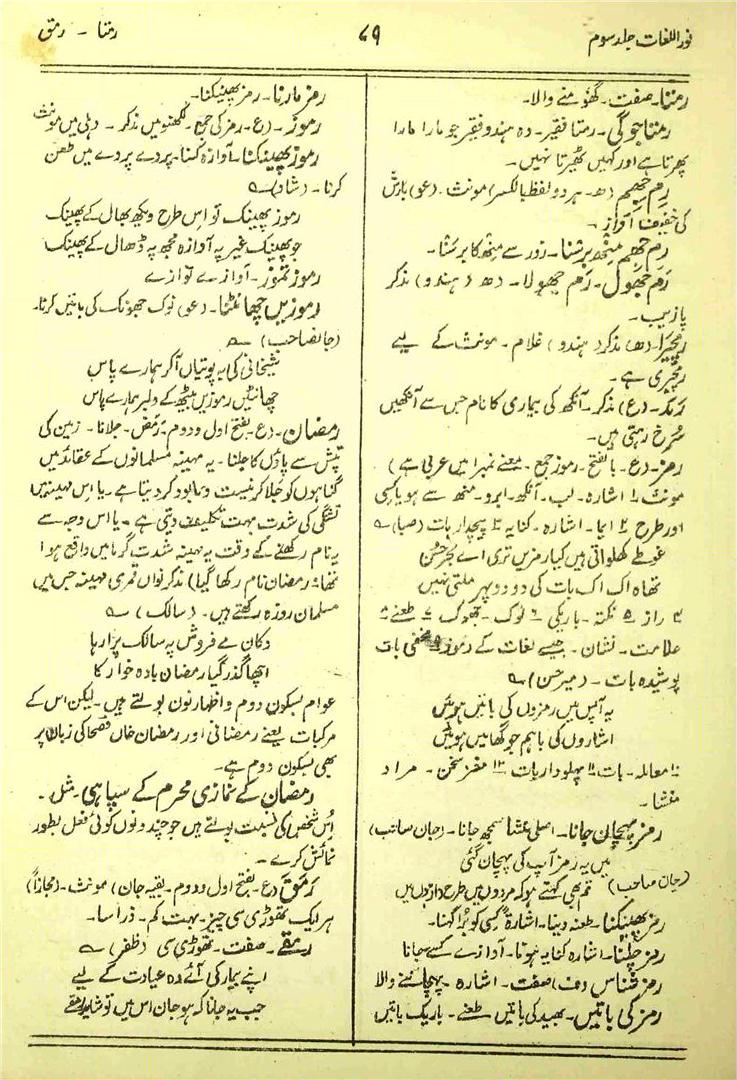 نور اللغات جلد سوم
۷۹
رمتا - رمق
رمتا - صفت - گھومنے والا -
رمتا جوگی - رمتا فقیر - وہ ہندو فقیر جو مارا مارا
پھرتا ہے اور کہیں ٹھیرتا نہیں -
رم جھم (ھ - ہر دو لفظ بالکسر) مونث - (عو) بارش
کی خفیف آواز -
رم جھم مینھ برسنا - زور سے مینھ کا برسنا -
رم جھول - رم جھولا - (ھ) (ہندو) مذکر
پازیب -
(ھ) مذکر (ہندو) غلام - مونث کے لیے
رمچیری ہے -
رمد - (ع) مذکر - آنکھ کی بیماری کا نام جس سے آنکھیں
سرخ رہتی ہیں -
رمز - (ع - بالفتح - رموز جمع - معنے نمبر ۱ میں عربی ہے)
مونث ۱ اشارہ - لب - آنکھ - ابرو - منھ سے ہو یا کسی
اور طرح ۲ ایما - اشارہ - کنایہ ۳ پیچدار بات (صبا) ؎
غوطے کھلواتی ہیں کیا رمزیں تری اے بحر حسن
تھاہ اک اک بات کی دو دو پہر ملتی نہیں
۴ راز ۵ نکتہ - باریکی ۶ نوک - جھوک ۷ طعنے ۸
علامت - نشان - جیسے لغات کے رموز ۹ مخفی بات
پوشیدہ بات - (میر حسن) ؎
یہ آپس میں رمزوں کی باتیں ہوئیں
اشاروں کی باہم جو گھاتیں ہوئیں
۱۰ معاملہ - بات ۱۱ پہلو دار بات ۱۲ مغز سخن - مراد
منشا -
رمز پہچان جانا - اصلی منشا سمجھ جانا - (جان صاحب)
میں یہ رمز آپ کی پہچان گئی
(جان صاحب) تم بھی کہتے ہو کہ مردوں میں طرحداز ہوں میں
رمز پھینکنا - طعنہ دینا - اشارۃً کسی کو برا کہنا -
رمز چلنا - اشارہ کنایہ ہونا - آوازے کسے جانا
رمز شناس (ف) صفت - اشارہ - پہچاننے والا
رمز کی باتیں - بھید کی باتیں طعنے - باریک باتیں
رمز مارنا - رمز پھینکنا -
رموز - (ع - رمز کی جمع - لکھنؤ میں مذکر - دہلی میں مونث
رموز پھینکنا - آوازہ کسنا - پردے پردے میں طعن
کرنا - (شاد) ؎
رموز پھینک تو اس طرح دیکھ بھال کے پھینک
جو پھینک غیر پہ آوازہ مجھ پہ ڈھال کے پھینک
رموز تموز - آوازے توازے
رموزیں چھانٹنا - (عو) نوک جھونک کی باتیں کرنا -
(جانصاحب) ؎
شیخانی کی یہ پوتیاں آکر ہمارے پاس
چھانٹیں رموزیں بیٹھ کے دلبر ہمارے پاس
رمضان - (ع - بفتح اول و دوم - رمض - جلانا - زمین کی
تپش سے پاؤں کا جلنا - یہ مہینہ مسلمانوں کے عقائد میں
گناہوں کو جلا کر نیست و نابود کر دیتا ہے - یا اس مہینہ میں
تشنگی کی شدت بہت تکلیف دیتی ہے - یا اس وجہ سے
یہ نام رکھنے کے وقت یہ مہینہ شدت گرما میں واقع ہوا
تھا رمضان نام رکھا گیا) مذکر نواں قمری مہینہ جس میں
مسلمان روزہ رکھتے ہیں - (سالک) ؎
دکان مے فروش پہ سالک پڑا رہا
اچھا گذر گیا رمضان بادہ خوار کا
عوام بسکون دوم و اظہار نون بولتے ہیں - لیکن اس کے
مرکبات یعنے رمضانی اور رمضان خاں فصحا کی زبان پر
بھی بسکون دوم ہے -
رمضان کے نمازی محرم کے سپاہی - مثل -
اس شخص کی نسبت بولتے ہیں جو چند دنوں کوئی فعل بطور
نمائش کرے -
رمق (ع - بفتح اول و دوم - بقیہ جان) مونث - (مجازاً)
ہر ایک تھوڑی سی چیز - بہت کم - ذرا سا -
رمقے - صفت - تھوڑی سی (ظفر) ؎
اپنے بیمار کی آئے وہ عیادت کے لیے
جب یہ جانا کہ ہو جان اس میں تو شاید رمقے